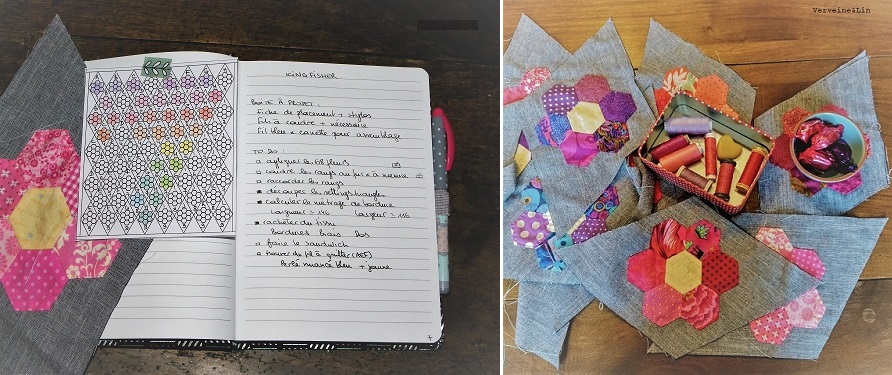 KINGFISHER
BOITE À PROJET :
Fiche de placement + stylos
Fils à coudre + nécessaire
Fil bleu + canette pour assemblage
TO DO :
appliquer les 68 fleurs
coudre les rangs au fur & à mesure
raccorder les rangs
découper les settings triangles
calculer le métrage de bordure
Longueur > 146 Largeur > 116
racheter du tissu
Bordures Biais Dos
faire le sandwich
trouver du fil à quilter
Perlé nuancé bleu + jaune
Verveine&Lin